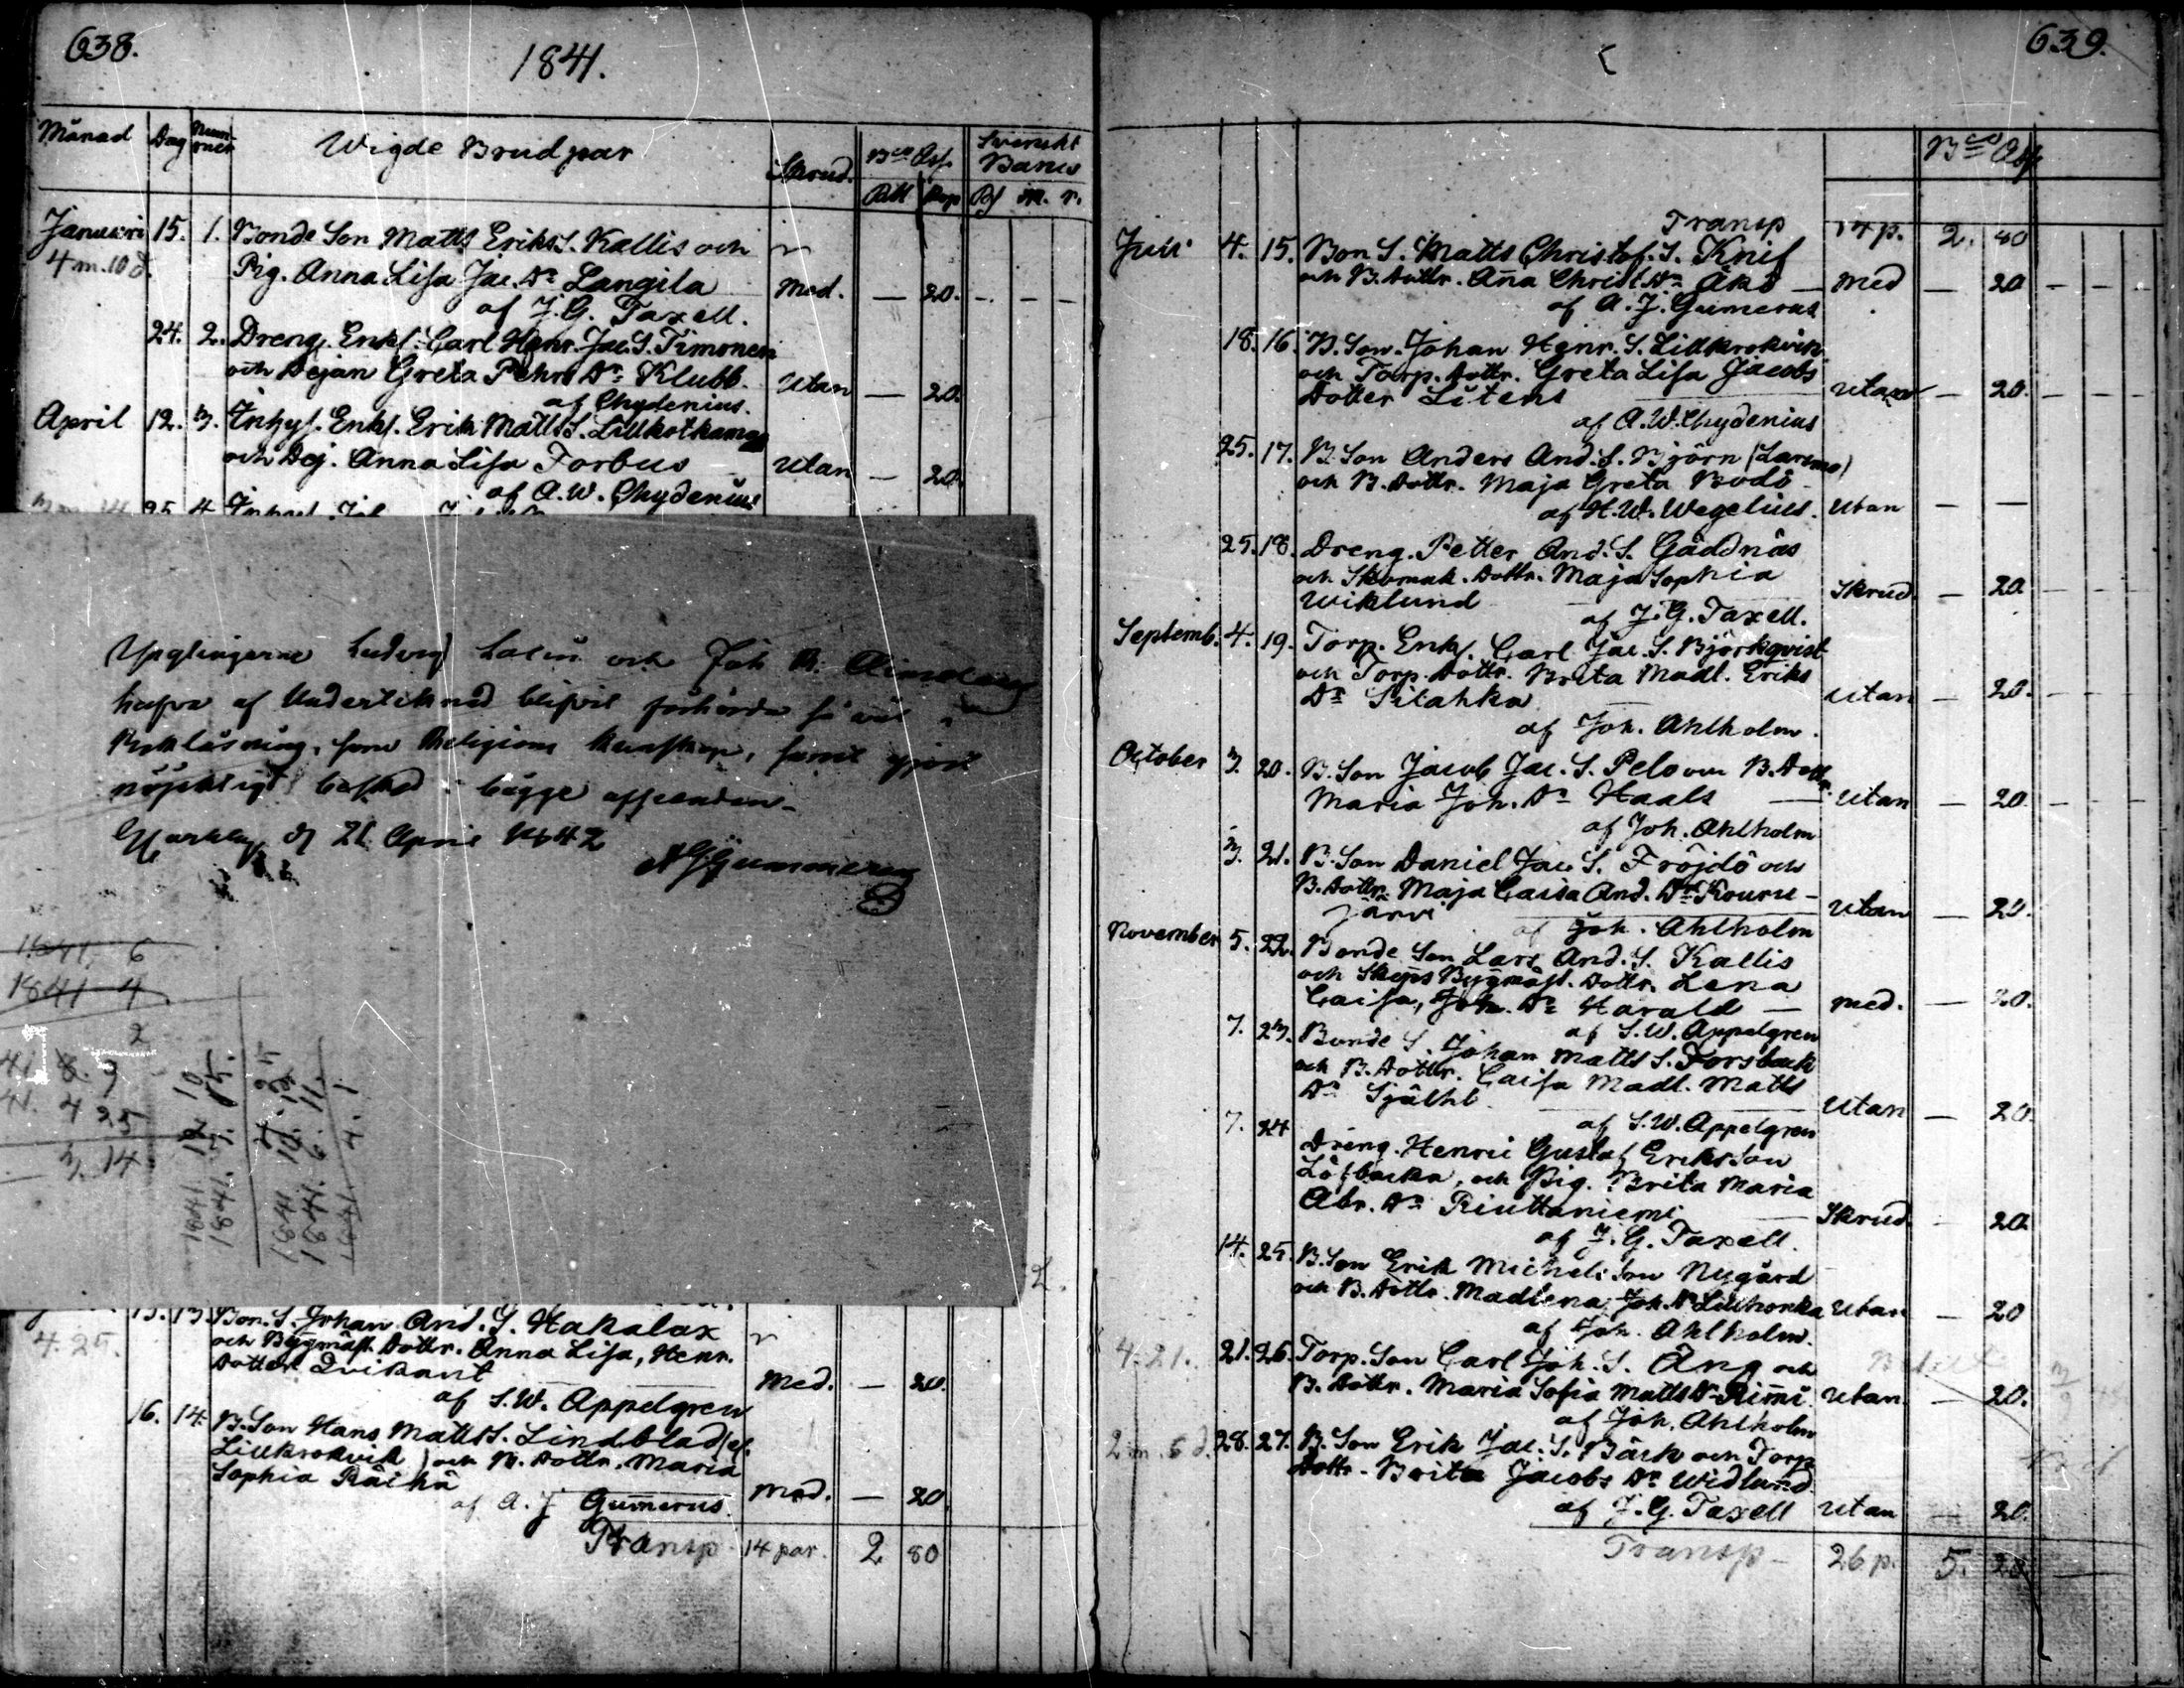 638.
1841.
Månad Dag Num-mer Wigde Brudpar Skrud. Bco Ass. Svenskt Banco
Rbl Kop Rd sk. r.
Januari 15. 1. Bonde Son Matts Eriks S. Kallis och
4 m. 10 d. Pig. Anna Lisa Jac. Dr Langila Med. — 20. — — —
af J. G. Taxell.
24. 2. Dreng. Enkl. Carl Henr. Jac. S. Timonen
och Dejan Greta Pehrs Dr Klubb. Utan — 20.
af Chydenius.
April 12. 3. Inhys. Enkl. Erik Matts S. Lillkotkamaa
och Dej. Anna Lisa Forbus Utan — 20.
af A. W. Chydenius
25. 4.
Ynglingarne Ludvig och Joh
hafva af Undertecknad blifvit förhörde så väl i
Bokläsning, som Religions Kunskap, samt gjort
nöjaktigt besked i bägge afseenden.
d. 21 April 1842
A J Gummerus
1841. 6
1841 4
2
41. 8. 9
41. 4 25
3. 14
1841. 12 10
1841. 7. 15.
1841 10.
1841. 6. 11.
1841. 4. 1
2.
15. 13. Bon. S. Johan And. S. Hakalax
4. 25. och Byggmäst. Dottr. Anna Lisa, Henr.
Dotter Qvikant Med. — 20.
af S. W. Appelgren
16. 14. B. Son Hans Matts S. Lindblad (el.
Lillkrokvik) och B. Dottr. Maria
Sophia Räihä Med. — 20.
af A. J Gumerus.
Transp 14 par. 2 80
639.
Bco Ass
Transp 14 p. 2. 80
Juli 4. 15. Bon S. Matts Christof. S. Knif
och B. Dottr. Anna Christ. Dr Åkö — Med — 20 — — —
af A. J. Gumerus
18. 16. B. Son. Johan Henr. S. Lillkrokvik
och Torp. Dottr. Greta Lisa Jacobs
Dotter Litens Utan — 20. — — —
af A. W. Chydenius
25. 17. B. Son Anders And. S. Björn (Larsmo)
och B. Dottr. Maja Greta Bodö
af H. W. Wegelius. Utan — —
25. 18. Dreng. Petter And. S. Gäddnäs
och Skomak. Dottr. Maja Sophia
Wiklund Skrud. — 20.
af J. G. Taxell.
Septemb. 4. 19. Torp. Enkl. Carl Jac. S. Björkqvist
och Torp. Dottr. Brita Madl. Eriks
Dr Silahka Utan — 20. — — —
af Joh. Ahlholm.
October 3. 20. B. Son Jacob Jac. S. Pelo och B. Dottr.
Maria Joh. Dr Haals — Utan — 20. — — —
af Joh. Ahlholm
3. 21. B. Son Daniel Jac. S. Fröjdö och
B. Dottr. Maja Caisa And. Dr Kouru-
järvi Utan — 20.
af Joh. Ahlholm
November 5. 22. Bonde Son Lars And. S. Kallis
och Skeps Byggmäst. Dottr. Lena
Caisa, Joh. Dr Harald — med. — 20.
af S. W. Appelgren
7. 23. Bonde S. Johan Matts S. Forsback
och B. Dottr. Caisa Madl. Matts
Dr Själhl Utan — 20.
af S. W. Appelgren
7. 24 Dreng. Henric Gustaf Eriks Son
Löfbacka, och Pig. Brita Maria
Abr. Dr Riuttaniemi Skrud. — 20.
af J. G. Taxell.
14. 25. B. Son Erik Michels Son Nygård
och B. Dottr. Madlena Joh. Dr Lillhonka Utan — 20
af Joh. Ahlholm.
4. 21. 21. 26. Torp. Son Carl Joh. S. Äng och
B. Dottr. Maria Sofia Matts Dr Rimi. Utan — 20.
af Joh. Ahlholm
2 m. 6 d. 28. 27. B. Son Erik Jac. S. Bäck och Torp
Dottr. Brita Jacobs Dr Widlund
af J. G. Taxell Utan — 20.
Transp — 26 p. 5. 20.